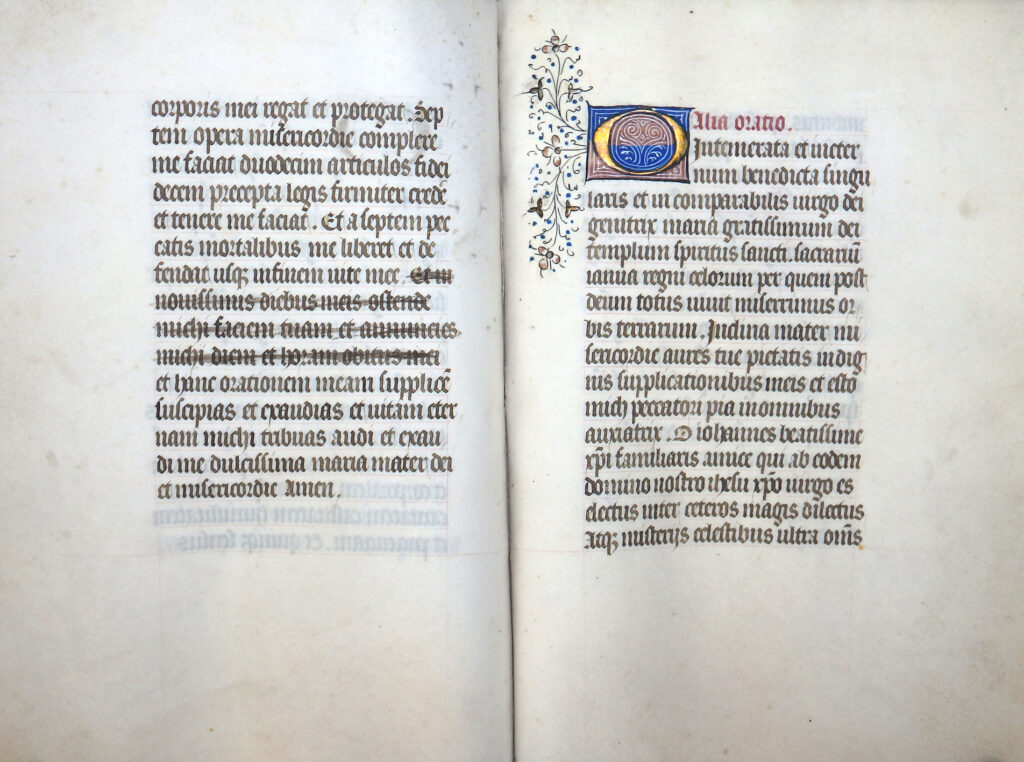 corporis mei regat et protegat. Sep
tem opera misericordie complere
me faciat duodecim articulos fidei
decem precepta legis firmiter credē
et tenere me faciat. Et a septem pec
catis mortalibus me liberet et de
fendat usqꝫ in finem vite mee. Et in
novissimis diebus meis ostende
michi faciem tuam et annuncies
michi diem et horam obitus mei
et hanc orationem meam supplicē
suscipias et exaudias et vitam eter
nam michi tribuas audi et exau
di me dulcissima maria mater dei
et misericordie Amen.
Alia oratio.
O Intemerata et in eter
num benedicta singu
laris et in comparabilis virgo dei
genitrix maria gratissimum dei
templum spiritus sancti. sacrariū
ianua regni celorum per quem post
deum totus vivit miserrimus or
bis terrarum. Inclina mater mi
sericordie aures tue pietatis indig
nis supplicationibus meis et esto
mich peccatori pia in omnibus
auxiatrix. O iohannes beatissime
xp̄i familiaris amice qui ab eodem
domino nostro ihesu xp̄o virgo es
electus inter ceteros magis dilectus
Atqꝫ misterijs celestibus ultra om̄s